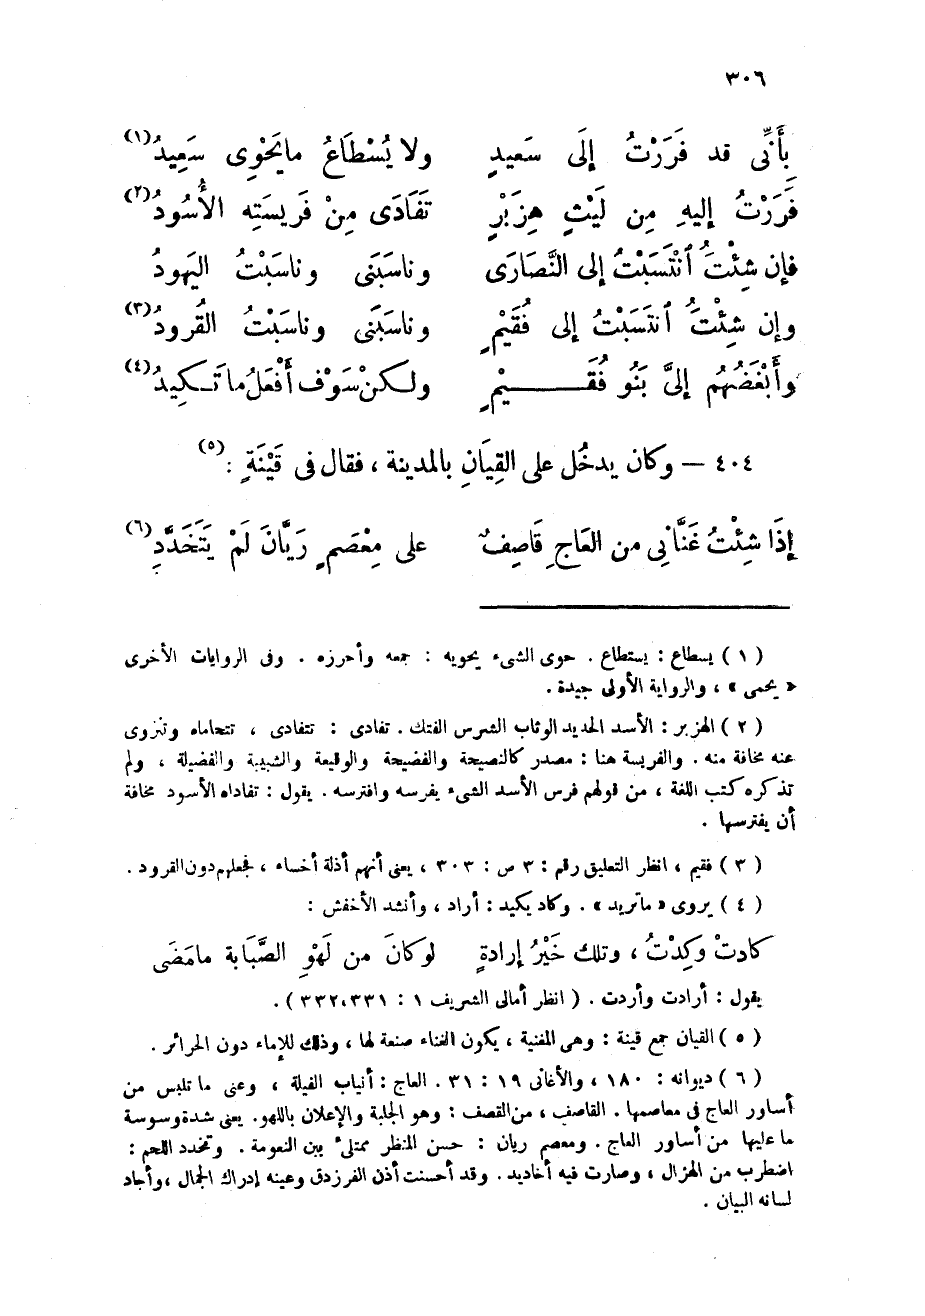 ٣٠٦
بِأَنِّى قد فَرَرْتُ إلَى سَعيدٍ ولا يُسْطَاعُ ما يَحْوِى سَعِيدُ (١)
فَرَرْتُ إليهِ مِن لَيْثٍ هِزَبْرٍ تَفَادَى مِنْ فَرِيسَتِهِ الأُسُودُ (٢)
فإن شِئْتَُ ٱنْتَسَبْتُ إلى النَّصَارَى وناسَبَنى وناسَبْتُ اليَهودُ
وإن شِئْتَُ ٱنتَسَبْتُ إلى فُقَيْمٍ وناسَبَنى وناسَبْتُ القُرودُ (٣)
وأَبْغَضُهُم إلىَّ بَنُو فُقَيْمٍ ولكنْ سَوْف أَفْعَلُ ما تَكِيدُ (٤)
٤٠٤ — وكان يدخُل على القِيَانِ بالمدينة ، فقال فى قَيْنَةٍ (٥) :
إذَا شِئْتُ غَنَّانِى من العَاجِ قَاصِفٌ على مِعْصَمٍ رَيَّانَ لَمْ يَتَخَدَّدِ (٦)
( ١ ) يسطاع : يستطاع . حوى الشىء يحويه : جمعه وأحرزه . وفى الروايات الأخرى
« يحمى » ، والرواية الأولى جيدة .
( ٢ ) الهزبر : الأسد الحديد الوثاب الشرس الفتك . تفادى : تتفادى ، تتحاماه وتنزوى
عنه مخافة منه . والفريسة هنا : مصدر كالنصيحة والفضيحة والوقيعة والشبيبة والفضيلة ، ولم
تذكره كتب اللغة ، من قولهم فرس الأسد الشىء يفرسه وافترسه . يقول : تفاداه الأسود مخافة
أن يفترسها .
( ٣ ) فقيم ، انظر التعليق رقم : ٣ ص : ٣٠٣ ، يعنى أنهم أذلة أخساء ، فجعلهم دون القرود .
( ٤ ) يروى « ما تريد » . وكاد يكيد : أراد ، وأنشد الأخفش :
كادتْ وَكِدْتُ ، وتلك خَيْرُ إرادةٍ لو كانَ من لَهْوِ الصَّبَابة ما مَضَى
يقول : أرادت وأردت . ( انظر أمالى الشريف ١ : ٣٣١،٣٣٢ ) .
( ٥ ) القيان جمع قينة : وهى المغنية ، يكون الغناء صنعة لها ، وذلك للإماء دون الحرائر .
( ٦ ) ديوانه : ١٨٠ ، والأغانى ١٩ : ٣١ . العاج : أنياب الفيلة ، وعنى ما تلبس من
أساور العاج فى معاصمها . القاصف ، من القصف : وهو الجلبة والإعلان باللهو. يعنى شدة وسوسة
ما عليها من أساور العاج . ومعصم ريان : حسن المنظر ممتلئ بين النعومة . وتخدد اللحم :
اضطرب من الهزال ، وصارت فيه أخاديد . وقد أحسنت أذن الفرزدق وعينه إدراك الجمال ، وأجاد
لسانه البيان .